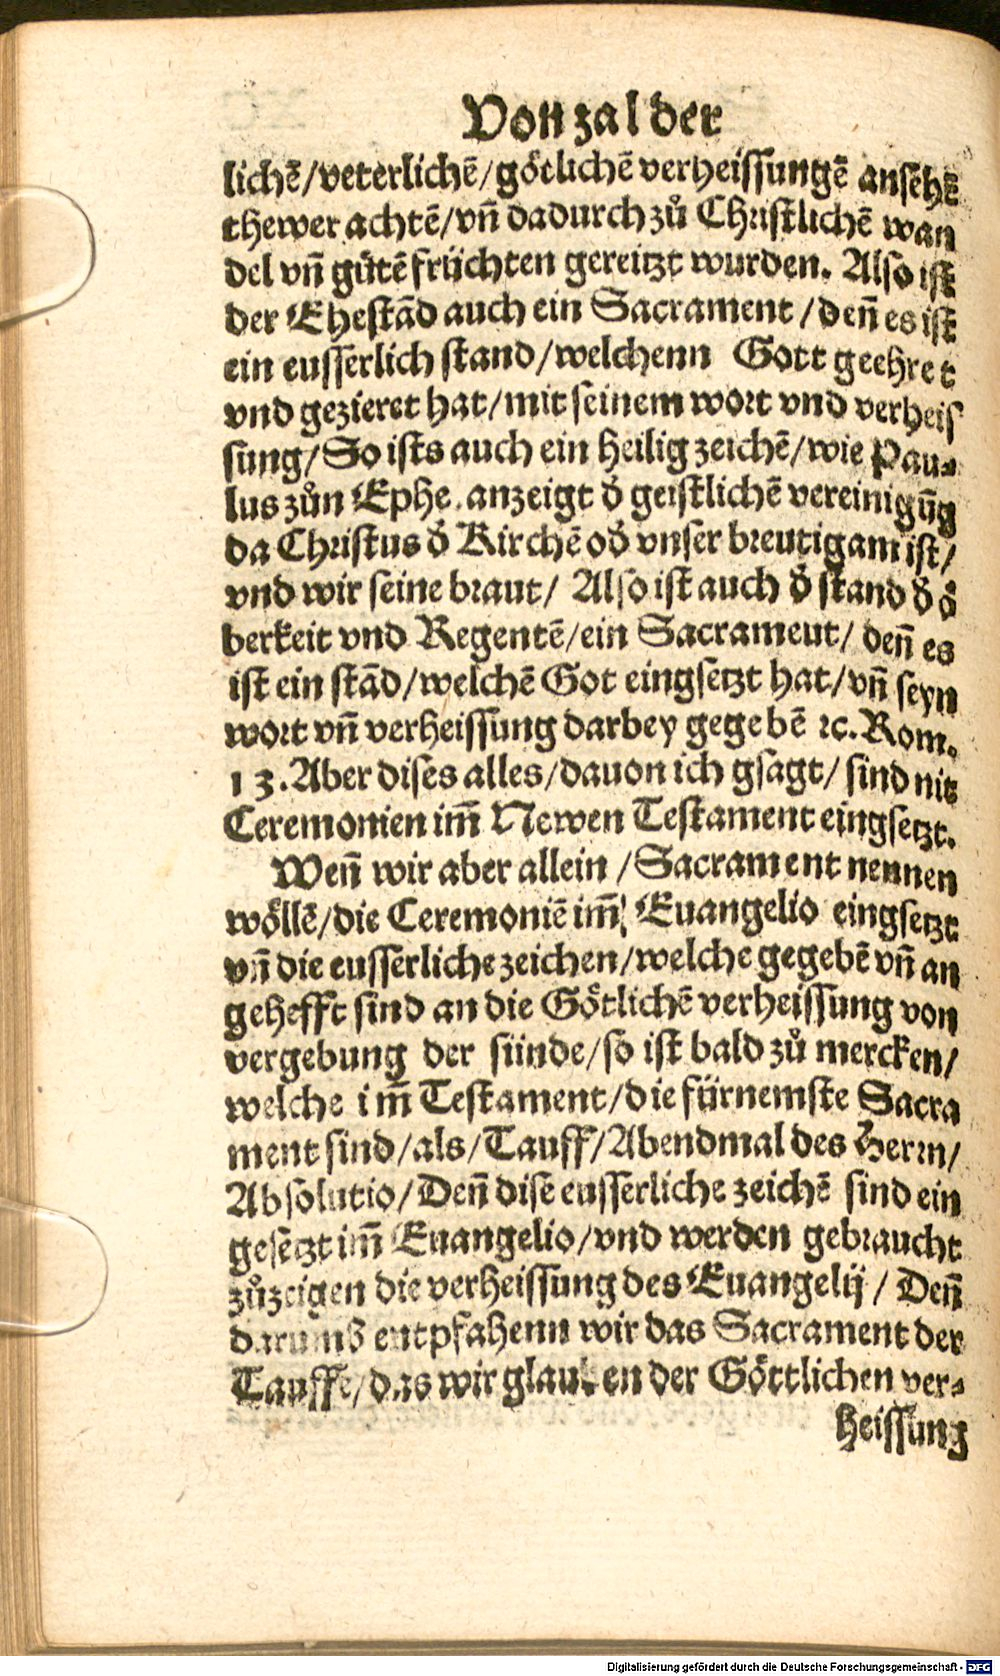 Von zal der
lichē/veterlichē/götlichē verheissungē ansehē
thewer achtē/vn̄ dadurch zů Christlichē wan
del vn̄ gůtē früchten gereitzt wurden. Also ist
der Ehestād auch ein Sacrament/den̄ es ist
ein eusserlich stand/welchenn Gott geehret
vnd gezieret hat/mit seinem wort vnd verheis
sung/So ists auch ein heilig zeichē/wie Pau-
lus zůn Ephe. anzeigt d̕ geistlichē vereinigūg
da Christus d̕ Kirchē od̕ vnser breutigam ist/
vnd wir seine braut/ Also ist auch d̕ stand d̕ ö
berkeit vnd Regentē/ein Sacrameut/ den̄ es
ist ein stād/welchē Got eingsetzt hat/vn̄ seyn
wort vn̄ verheissung darbey gegebē ꝛc. Rom.
13. Aber dises alles/dauon ich gsagt/ sind nit
Ceremonien im̄ Newen Testament eingsetzt.
Wen̄ wir aber allein/Sacrament nennen
wöllē/die Ceremoniē im̄ Euangelio eingsetzt
vn̄ die eusserliche zeichen/welche gegebē vn̄ an
gehefft sind an die Götlichē verheissung von
vergebung der sünde/so ist bald zů mercken/
welche im̄ Testament/die fürnemste Sacra
ment sind/als/Tauff/Abendmal des Herrn/
Absolutio/Den̄ dise eusserliche zeichē sind ein
gesetzt im̄ Euangelio/vnd werden gebraucht
zůzeigen die verheissung des Euangelij/ Den̄
darumb entpfahenn wir das Sacrament der
Tauffe/das wir glauben der Göttlichen ver-
heissung
Digitalisierung gefördert durch die Deutsche Forschungsgemeinschaft - DFG